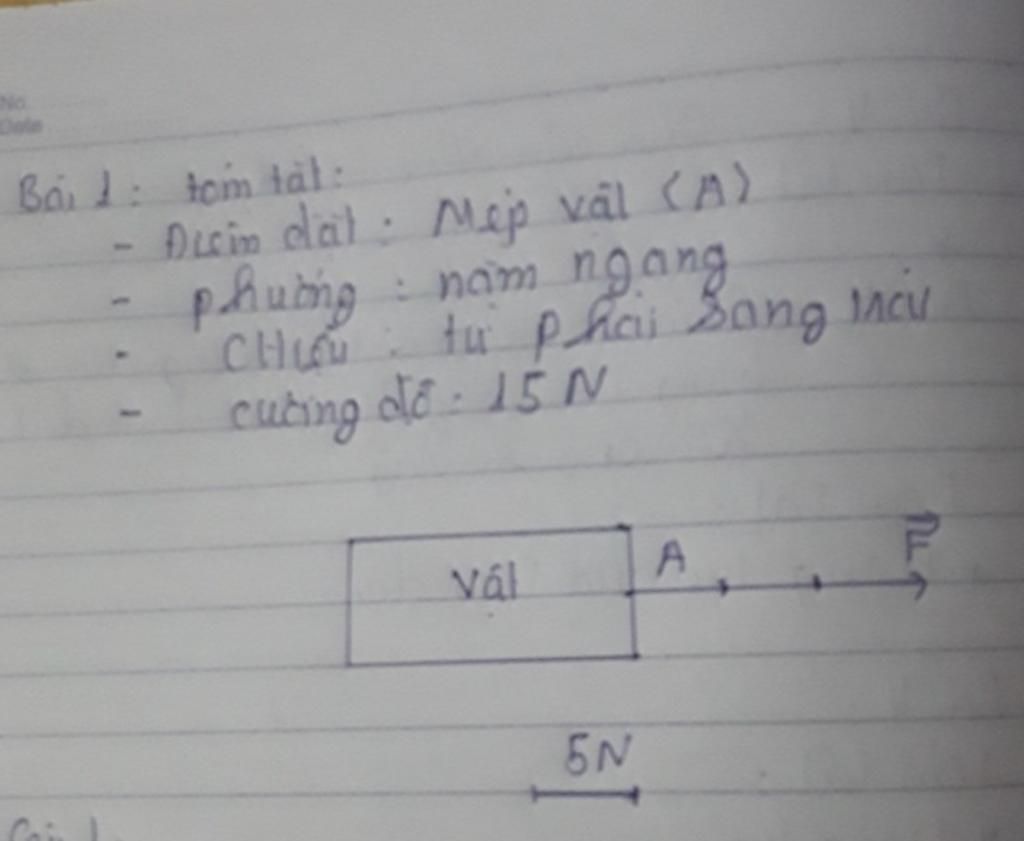 No.
Date
Bài 1: tóm tắt:
- Điểm đặt: Mép vật (A)
- phương: nằm ngang
- CHiều: từ phải sang trái
- cường độ: 15 N
Vật
A
F
5N